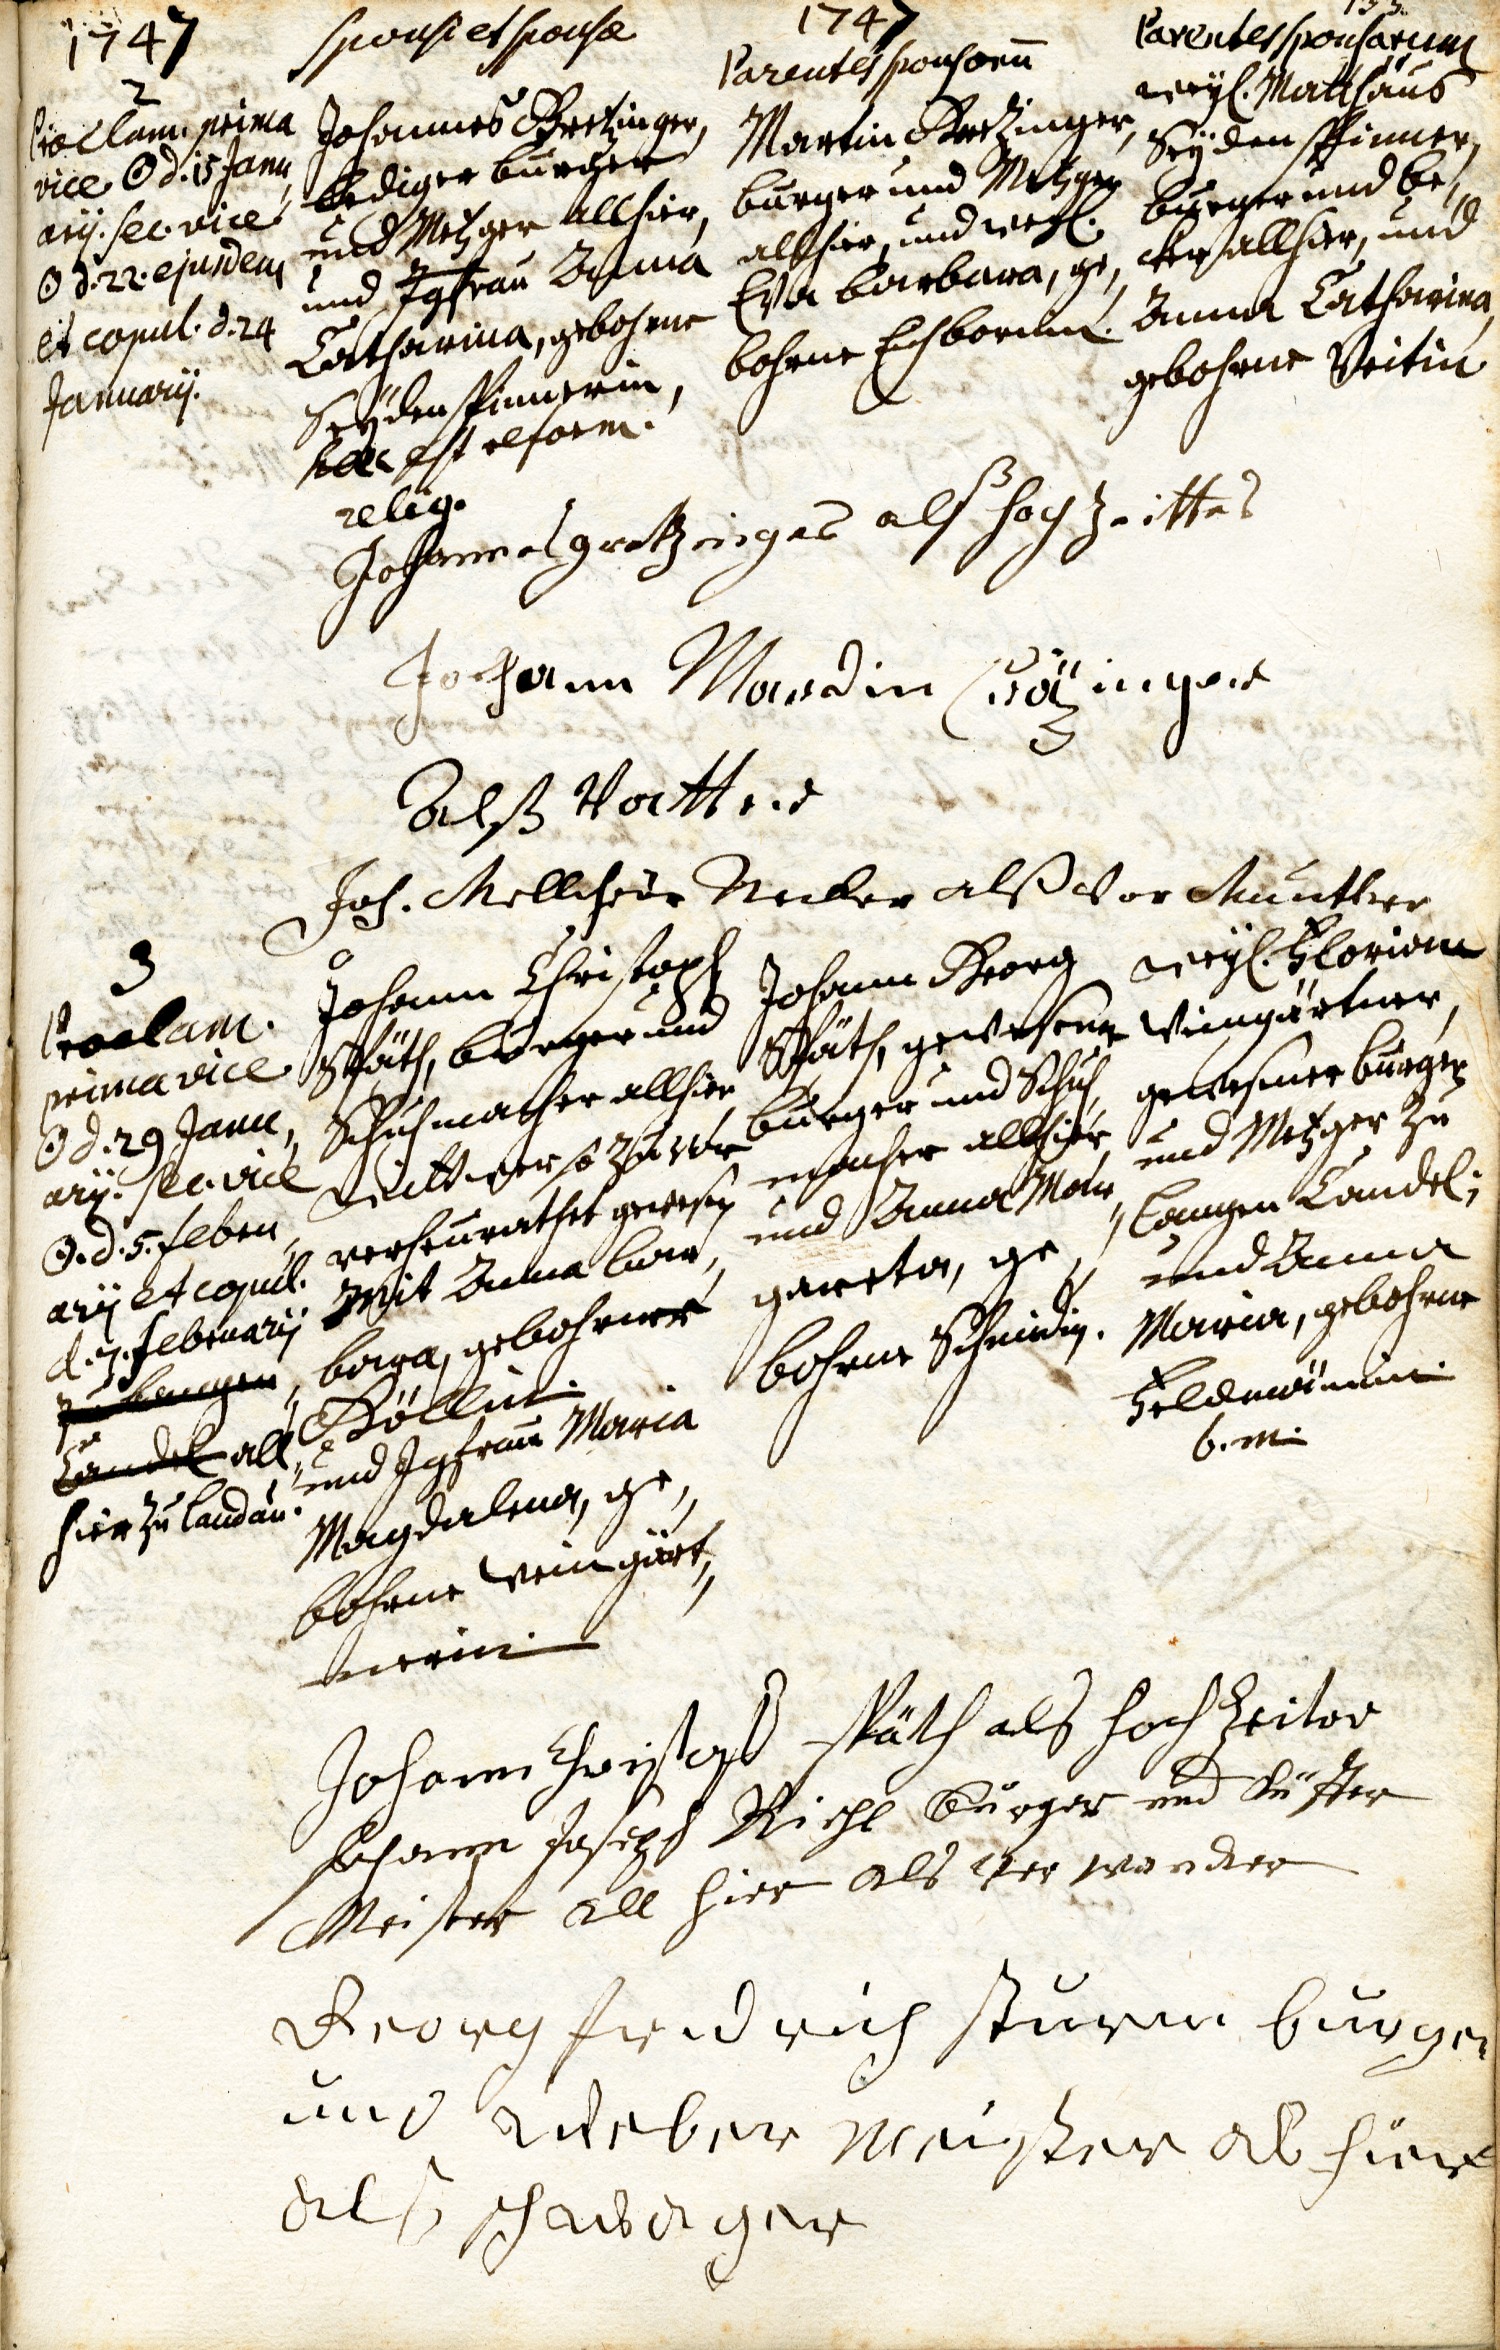 1747
sponsi et sponsæ
1747
Parentes sponsorū
Parentes sponsarum
2
Proclam. prima
vice ☉ d. 15 Janu,
arij. sec. vice
☉ d. 22. ejusdem
et copul. d. 24
Januarij.
Johannes Gretzinger,
lediger burger
und Metzger allhier,
und Jgfrau Anna
Catharina, gebohrne
Seÿdenspinnerin,
hæc est reform.
relig.
Martin Gretzinger,
burger und Metzger
allhier, und
Eva barbara, ge,
bohrne
weÿl. Matthäus
Seÿdenspinner,
burger und be,
cker allhier, und
Anna Catharina,
gebohrne Veitin
Johannes gretzinger alß hochzeitter
Johann Mardin Grötzinger
Alß Vatter
Joh. Mellchior als Vor Muntter
3
Proclam.
prima vice
☉ d. 29 Janu,
arij. sec. vice
☉. d. 5. febru,
arij et copul.
d. 7. februarij
zu Langen,
Candel all,
hier zu landau.
Johann Christoph
Späth, burger und
Schuhmacher allhier,
Wittwer so zuvor
verheurathet gewesen
mit Anna bar,
bara, gebohrner
Göllin
und Jgfrau Maria
Magdalena, ge,
bohrne Weingärt,
nerin.
Johann Georg
Späth, gewesener
burger und Schuh,
macher allhier,
und Anna Mar,
gareta, ge,
bohrne Schmidin.
weÿl. Florian
Weingärtner,
gewesener burger
und Metzger zu
Langen Candel;
und Anna
Maria, gebohrne
b. m.
Johann Christoph späth als hochzeiter
Johann Joseph Riehl burger und Küffer
Meister all hier als Verwander
Georg fridrich sturm burger
und Weber Meister al hier
alß schwager